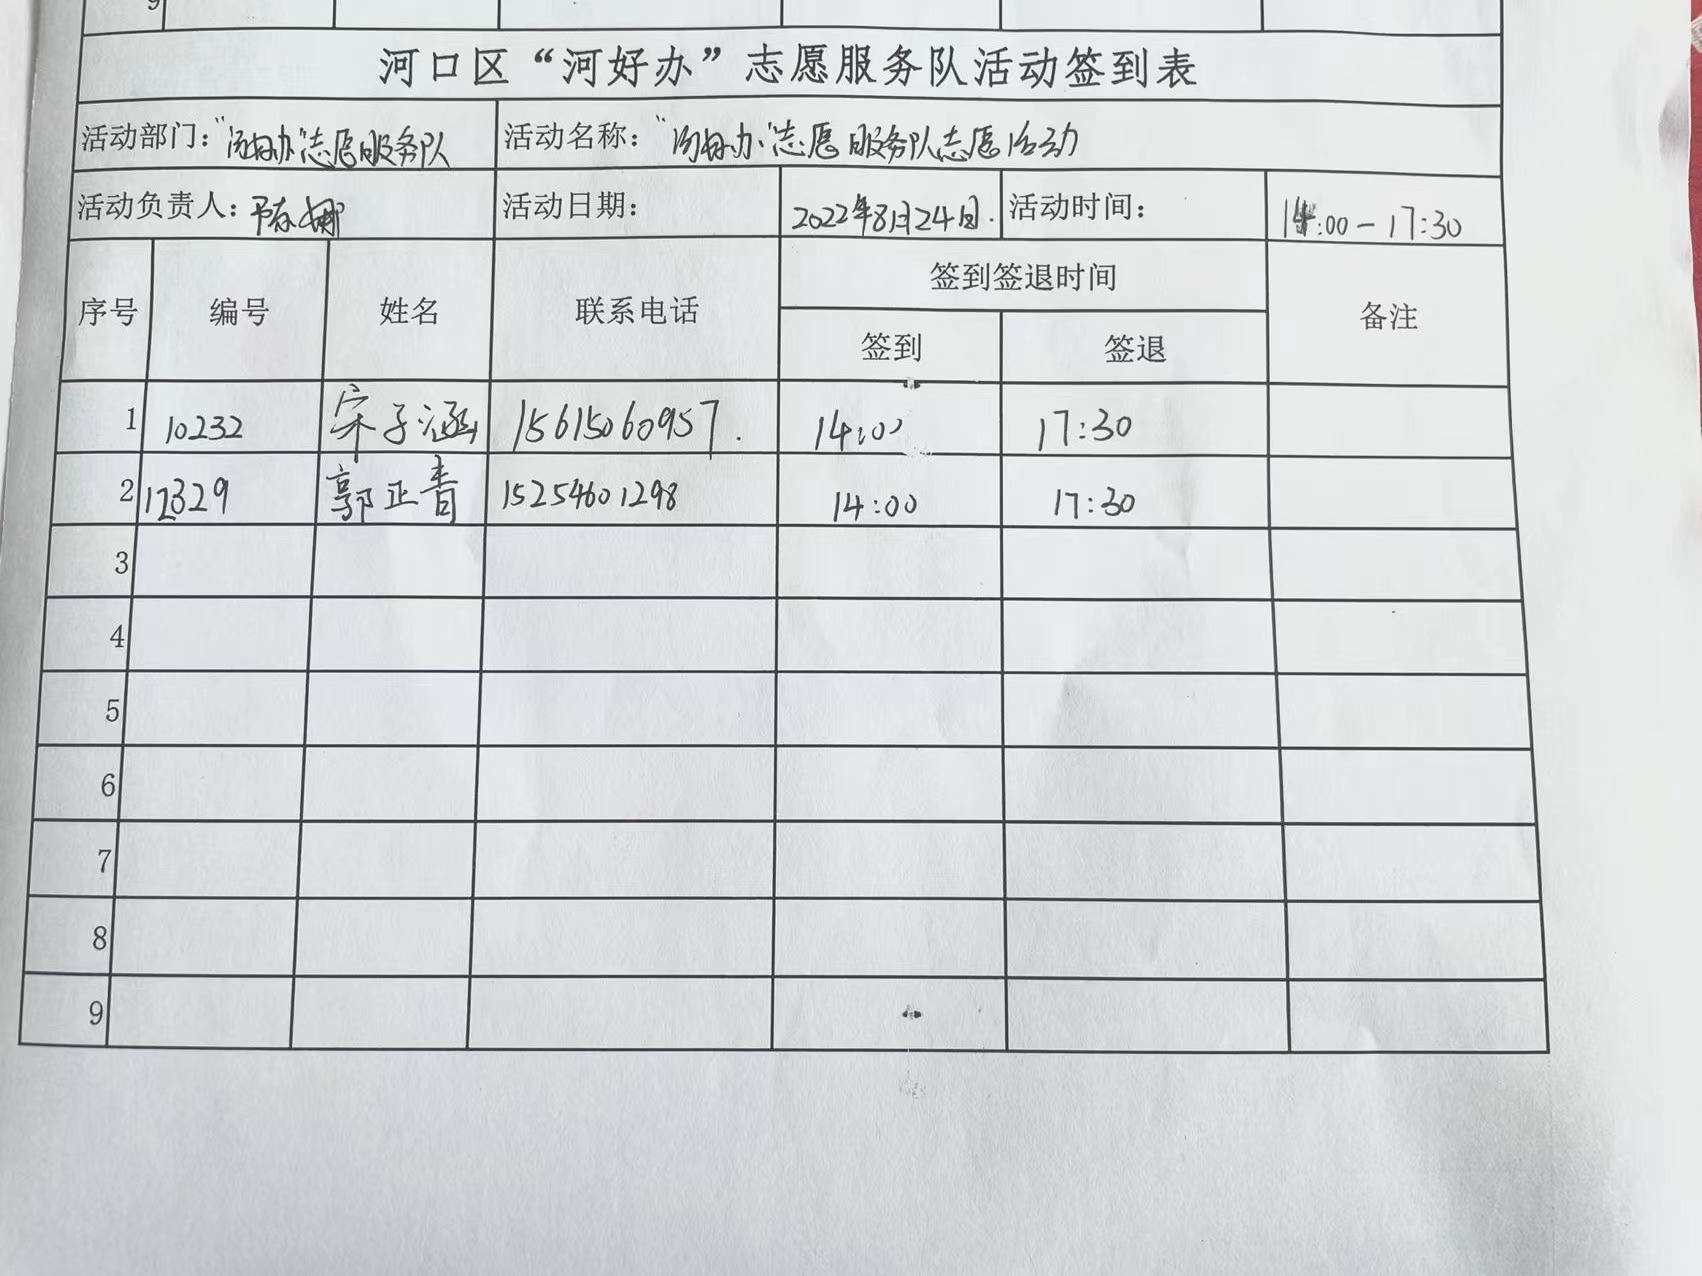 9
河口区“河好办”志愿服务队活动签到表
活动部门：“河好办”志愿服务队 活动名称：“河好办”志愿服务队志愿活动
活动负责人： 娜 活动日期： 2022年8月24日. 活动时间： 14:00－17:30
序号 编号 姓名 联系电话 签到签退时间 备注
签到 签退
1 10232 宋子涵 15615060957. 14:00 17:30
2 12329 郭正青 15254601298 14:00 17:30
3
4
5
6
7
8
9